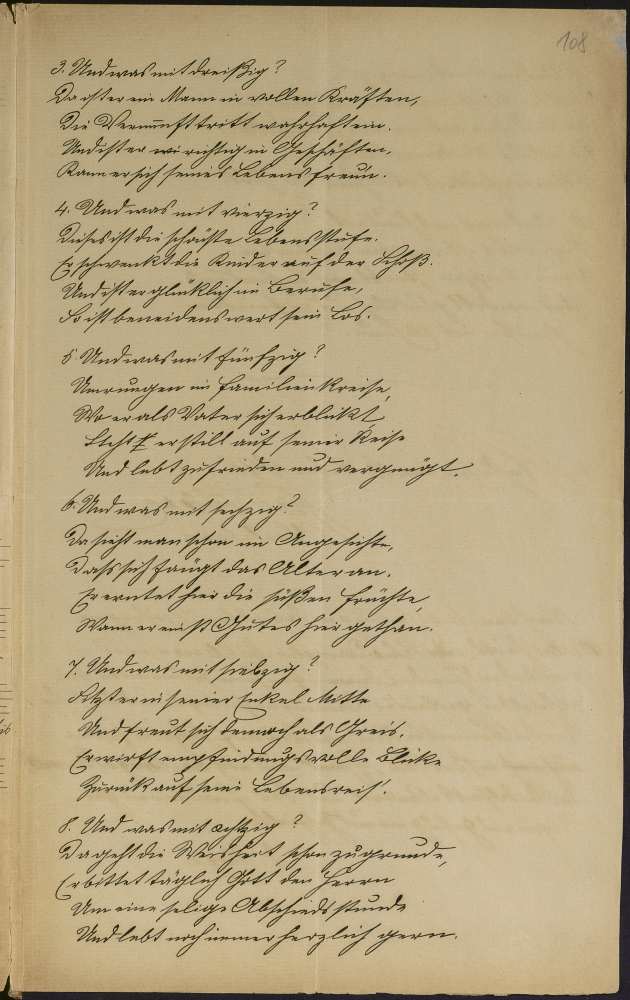 108
3. Und was mit dreißig?
Da ist er ein Mann in vollen Kräften,
Die Vernunft tritt wahrhaft ein.
Und ist er wie richtig in Geschäften,
Kann er sich seines Lebens freun.
4. Und was mit vierzig?
Dieses ist die schönste Lebensstufe.
Er schwenkt die Kinder auf der Schoß.
Und ist er glücklich im Berufe,
So ist beneidenswert sein Los.
5 Und was mit fünfzig?
Umrungen im Familienkreise,
Wo er als Vater sich erblickt
Steht er still auf seiner Reise
Und lebt zufrieden und vergnügt.
6. Und was mit sechzig?
Da sieht man schon im Angesichte,
Dass sich fängt das Alter an.
Er erntet hier die süßen Früchte,
Wann er einst Gutes hier gethan.
7. Und was mit siebzig?
Sitzt er in seiner Enkel Mitte
Und freut sich dennoch als Greis.
Er wirft empfindungsvolle Blicke
Zurück auf seine Lebensreis'.
8. Und was mit achtzig?
Da geht die Weisheit schon zugrunde,
Er bittet täglich Gott den Herrn
Um eine selige Abschiedsstunde
Und lebt noch immer herzlich gern.